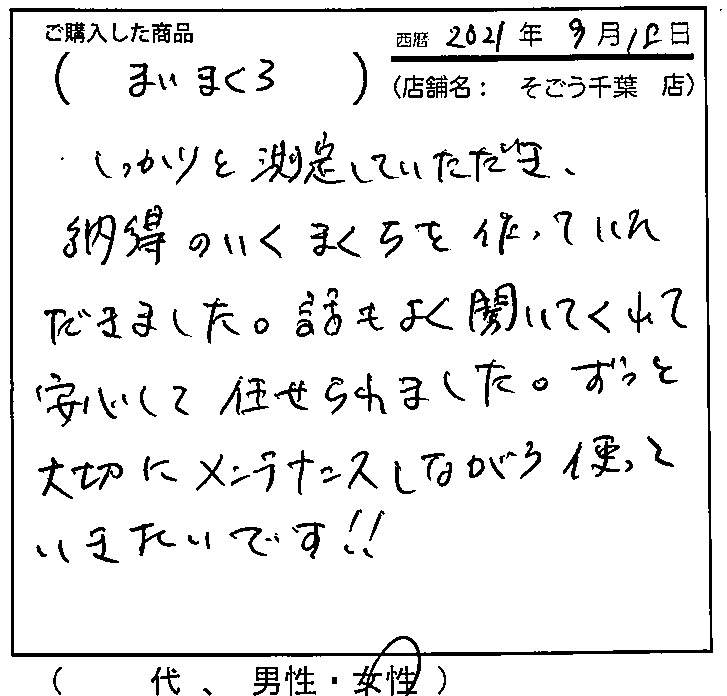 ご購入した商品
西暦 2021 年 9 月 12 日
( まいまくろ )
(店舗名: そごう千葉 店)
しっかりと測定していただき、
納得のいくまくらを作っていた
だきました。話もよく聞いてくれて
安心して任せられました。ずっと
大切にメンテナンスしながら使って
いきたいです!!
( 代、男性・女性)